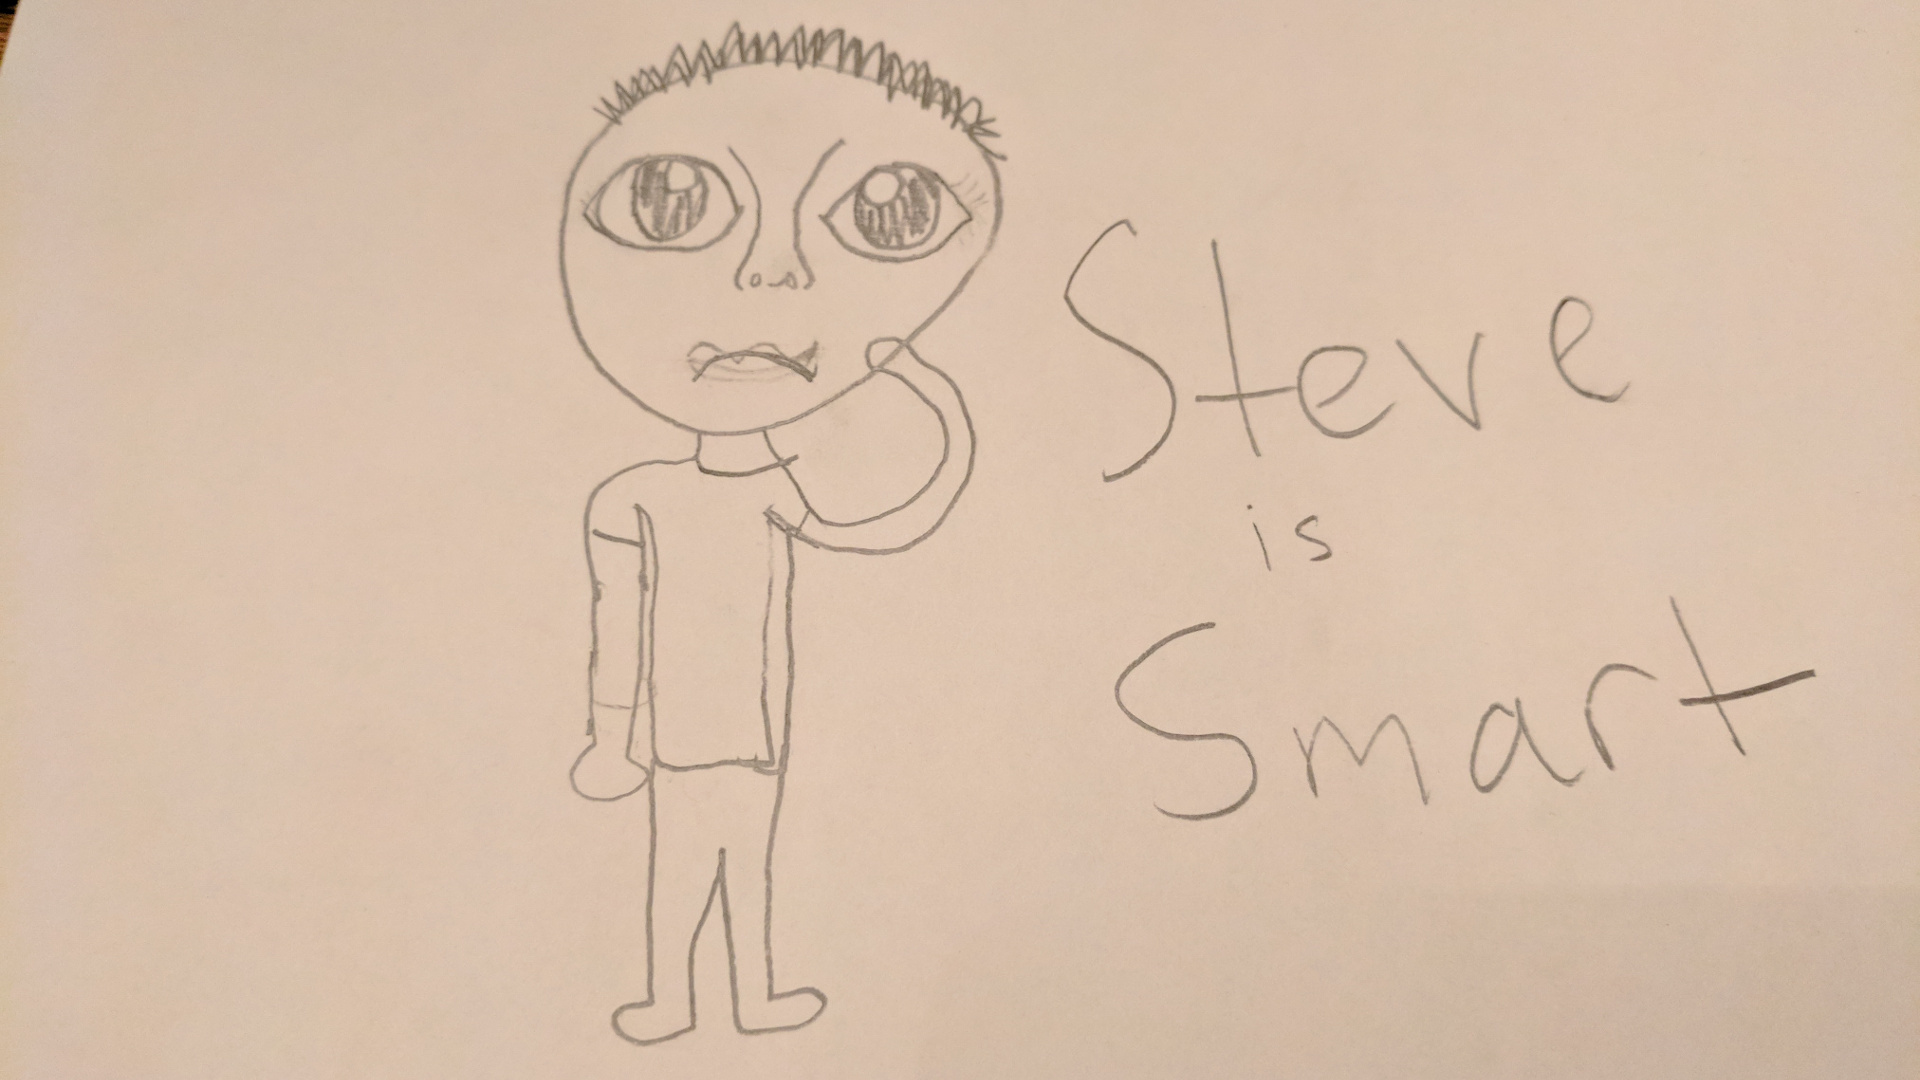 Steve
is
Smart